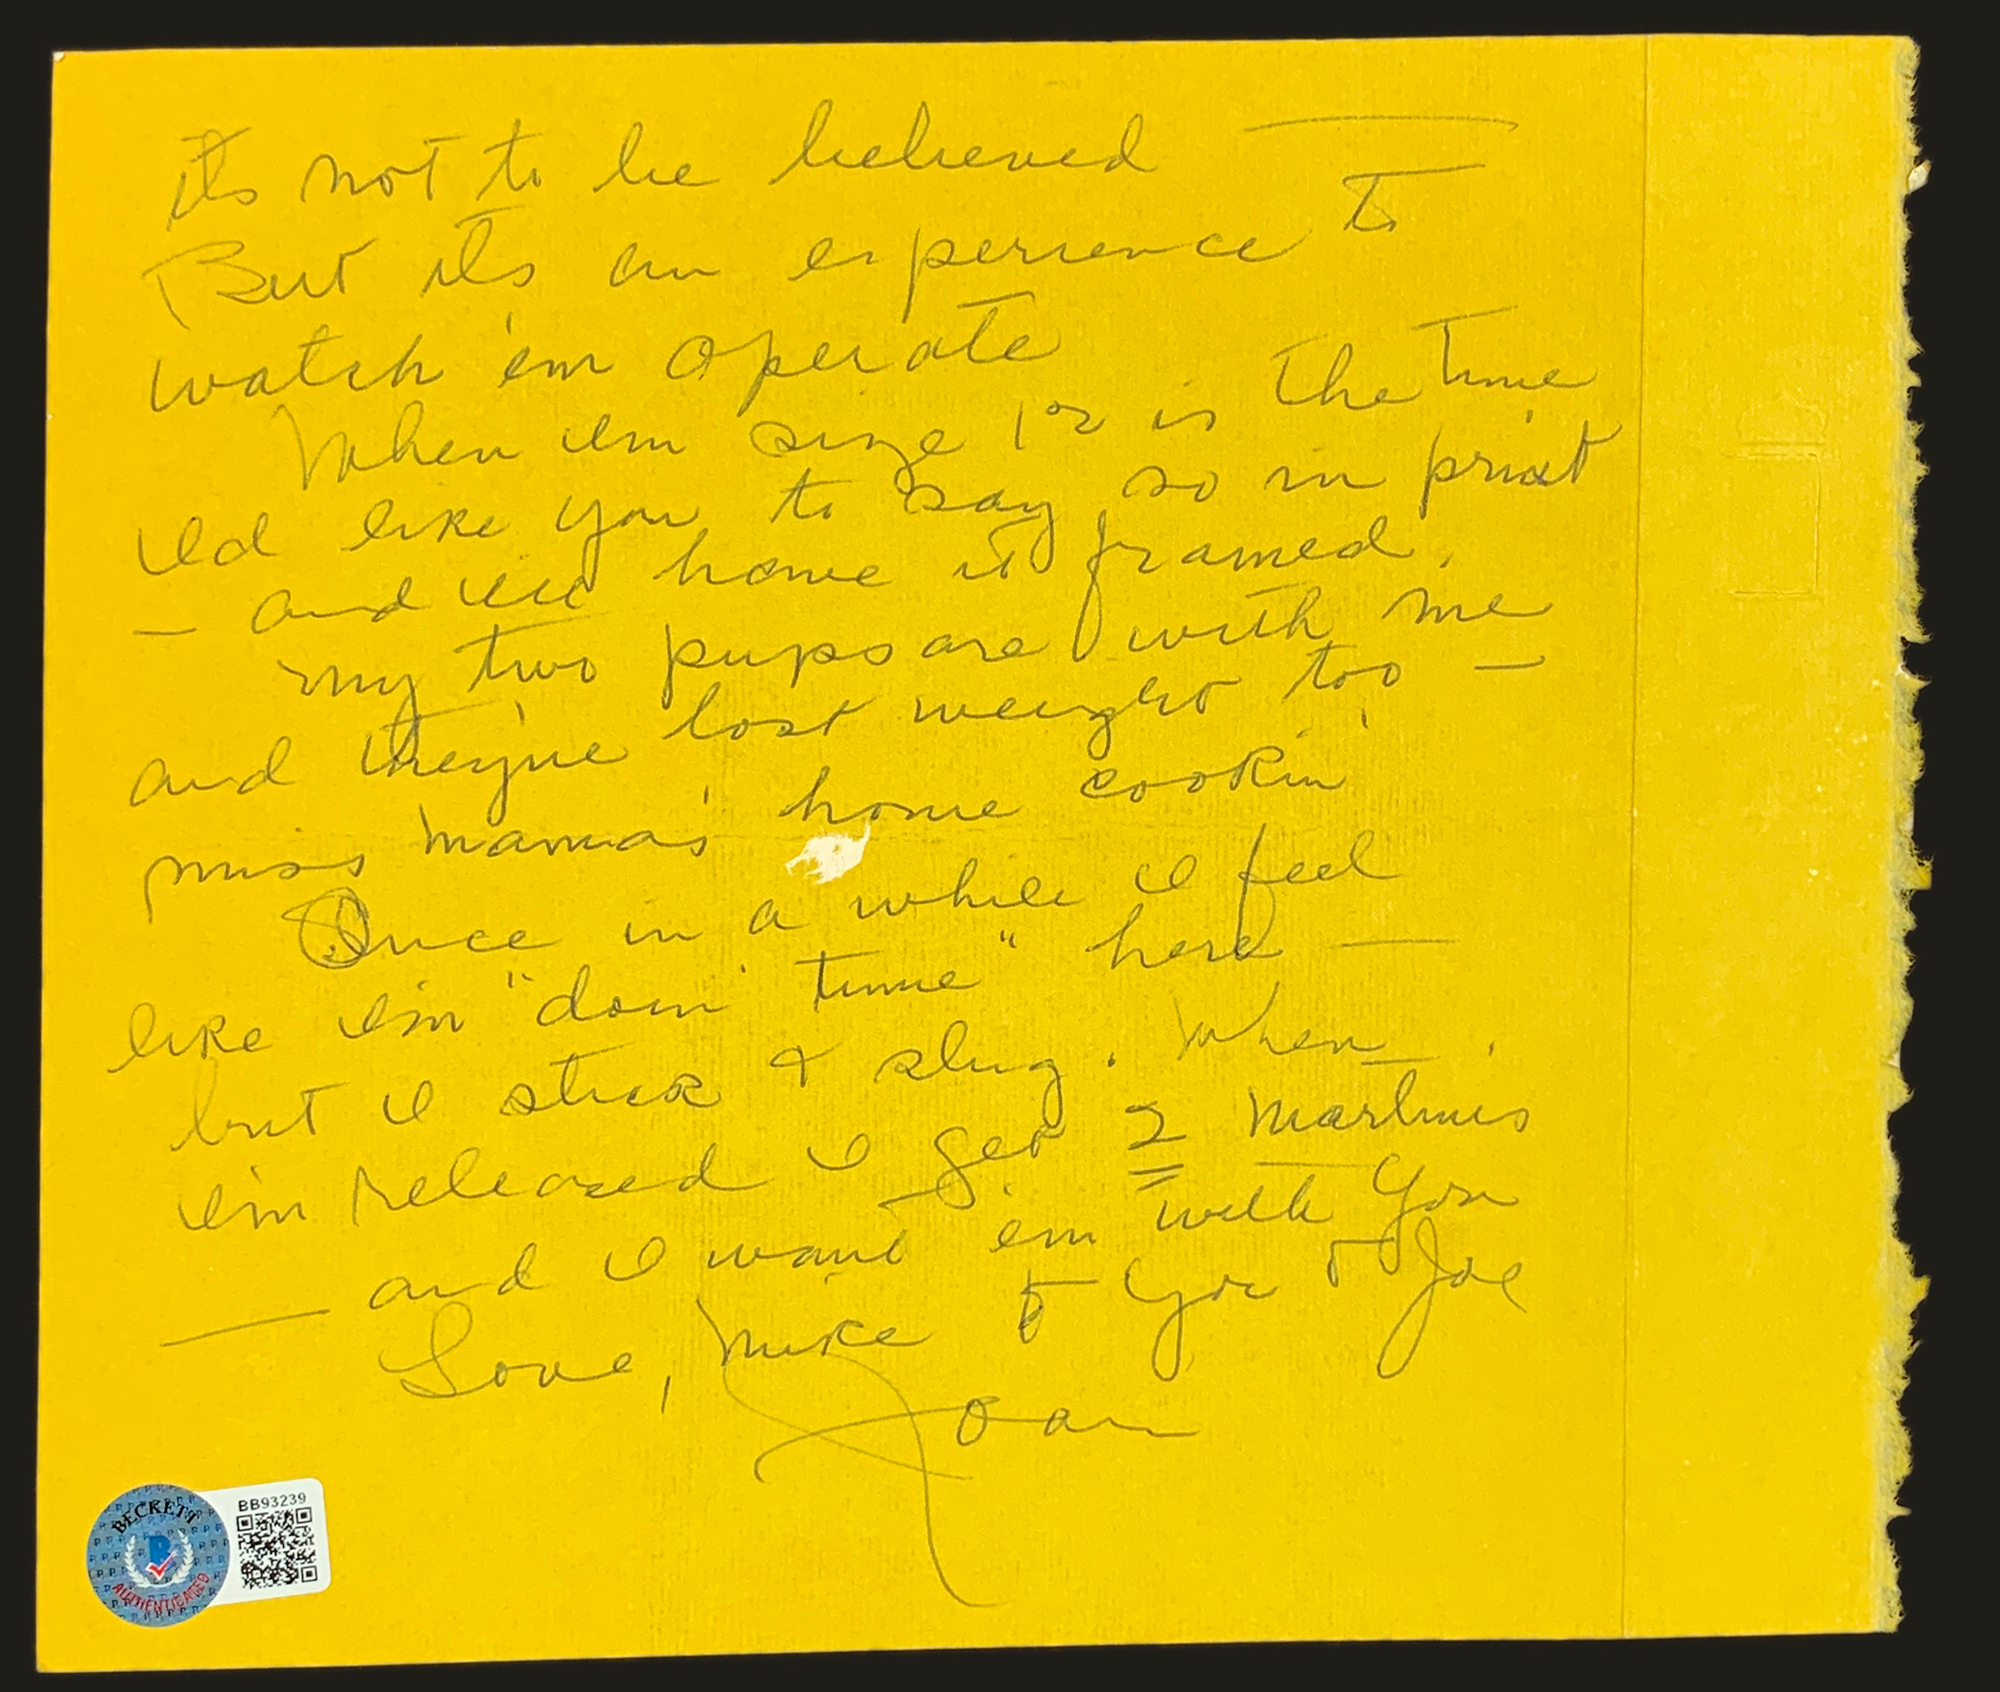 it's not to be believed —
But it's an experience to
watch 'em operate
When I'm size 12 is the time
I'd like you to say so in print
— and I'll have it framed.
my two pups are with me
and they've lost weight too —
miss Mama's home cookin'
Once in a while I feel
like I'm "doin' time" here —
but I stick & slug. When
I'm released I get 2 martinis
— and I want 'em with you
Love, Mike to you & Joe
Joan
BECKETT
AUTHENTICATED
BB93239